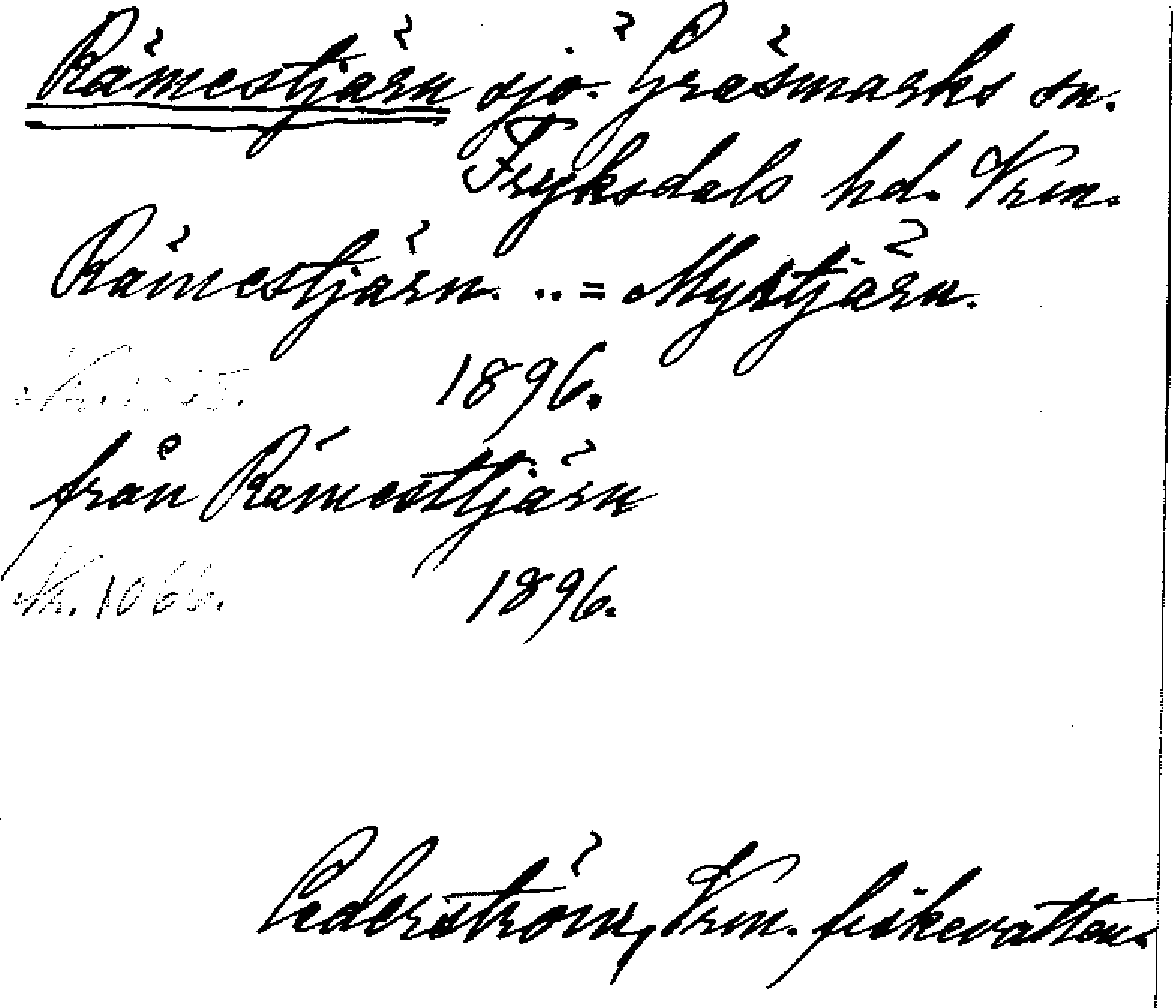 Rämestjärn sjö. Gräsmarks sn.
Fryksdals hd. Vrm.
Rämestjärn. .. = Myrtjärn.
1896.
från Rämesttjärn
Nr. 1066. 1896.
Cederström, Vrm. fiskevatten.